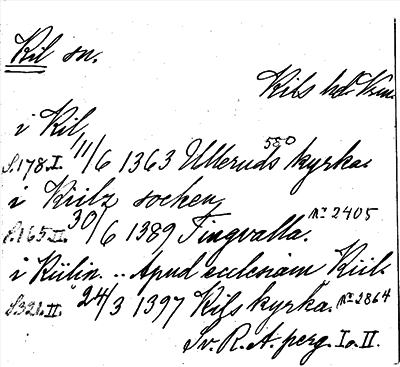 Kil sn.
Kils hd Vrm.
i Kil
S.178.I. 11/6 1363 Ulleruds kyrka. 580
i Kiilz socken
S.165.II. 30/6 1389 Tingvalla. No 2405
i Kiilin .. Apud ecclesiam Kiil.
S.321.II. 24/3 1397 Kils kyrka. No 2864
Sv. R. A. perg. I o. II.